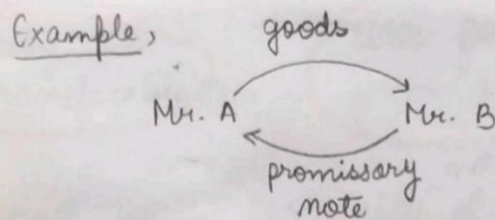 Example,
goods
Mr. A Mr. B
promissory
note